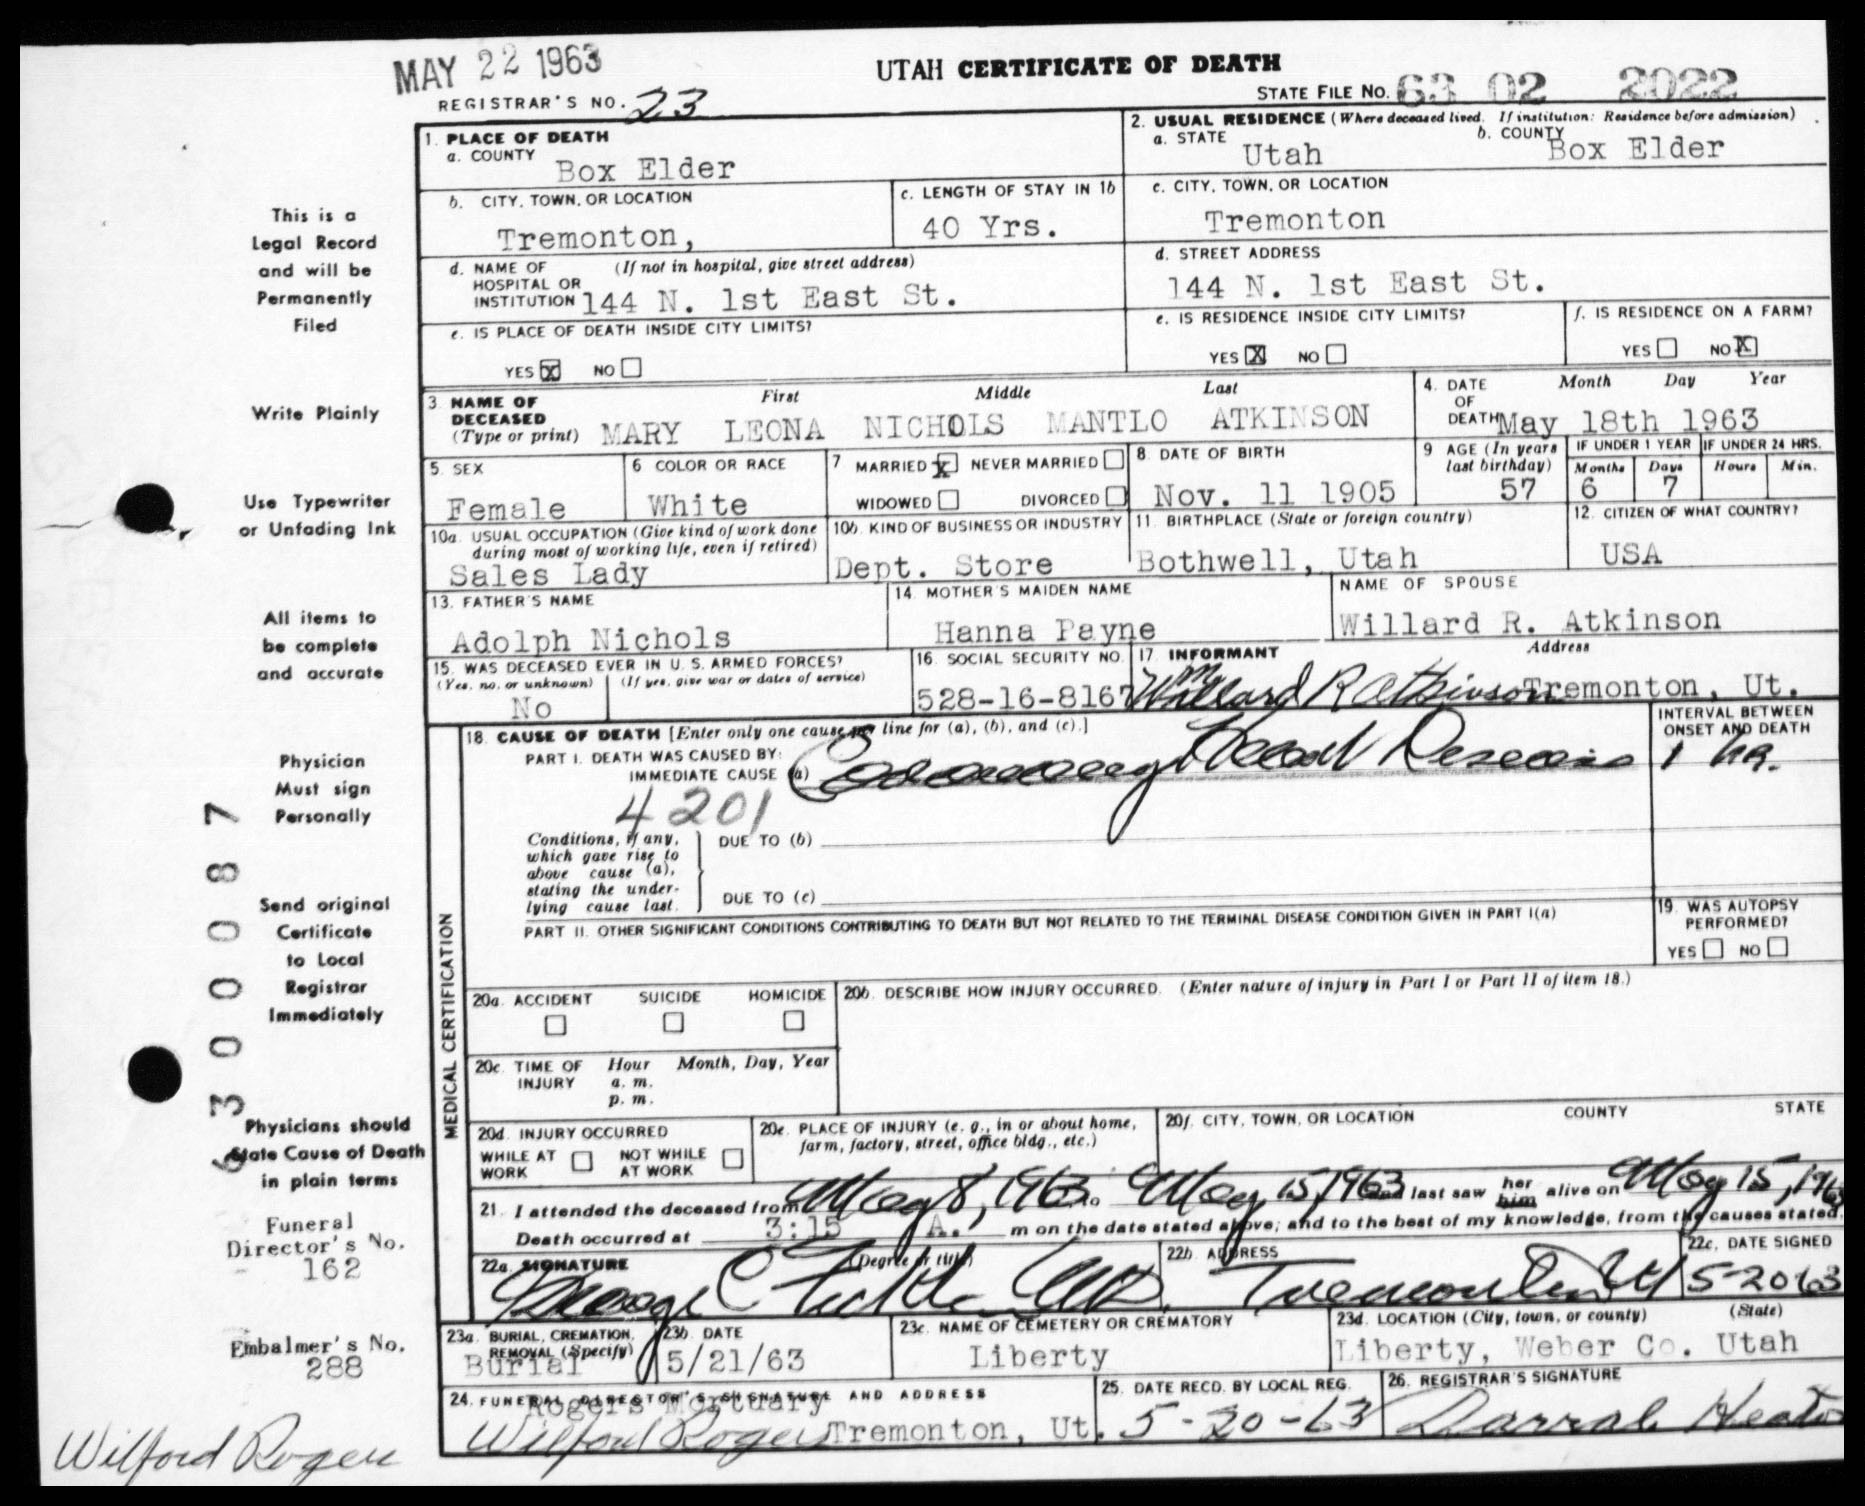 MAY 22 1963
UTAH CERTIFICATE OF DEATH
REGISTRAR'S NO. 23
STATE FILE NO. 63 02 2022
1. PLACE OF DEATH
a. COUNTY Box Elder
2. USUAL RESIDENCE (Where deceased lived. If institution: Residence before admission)
a. STATE Utah b. COUNTY Box Elder
b. CITY, TOWN, OR LOCATION Tremonton,
c. LENGTH OF STAY IN 1b 40 Yrs.
c. CITY, TOWN, OR LOCATION Tremonton
d. NAME OF HOSPITAL OR INSTITUTION (If not in hospital, give street address) 144 N. 1st East St.
d. STREET ADDRESS 144 N. 1st East St.
e. IS PLACE OF DEATH INSIDE CITY LIMITS?
YES X NO
e. IS RESIDENCE INSIDE CITY LIMITS?
YES X NO
f. IS RESIDENCE ON A FARM?
YES NO X
3 NAME OF DECEASED (Type or print) First Middle Last
MARY LEONA NICHOLS MANTLO ATKINSON
4. DATE OF DEATH Month Day Year
May 18th 1963
5. SEX Female
6 COLOR OR RACE White
7 MARRIED X NEVER MARRIED
WIDOWED DIVORCED
8. DATE OF BIRTH Nov. 11 1905
9 AGE (In years last birthday) 57
IF UNDER 1 YEAR Months 6 Days 7
IF UNDER 24 HRS. Hours Min.
10a. USUAL OCCUPATION (Give kind of work done during most of working life, even if retired) Sales Lady
10b. KIND OF BUSINESS OR INDUSTRY Dept. Store
11. BIRTHPLACE (State or foreign country) Bothwell, Utah
12. CITIZEN OF WHAT COUNTRY? USA
13. FATHER'S NAME Adolph Nichols
14. MOTHER'S MAIDEN NAME Hanna Payne
NAME OF SPOUSE Willard R. Atkinson
15. WAS DECEASED EVER IN U. S. ARMED FORCES?
(Yes, no, or unknown) (If yes, give war or dates of service)
No
16. SOCIAL SECURITY NO. 528-16-8167
17. INFORMANT Address
Mr Willard R Atkinson Tremonton, Ut.
MEDICAL CERTIFICATION
18. CAUSE OF DEATH [Enter only one cause per line for (a), (b), and (c).]
INTERVAL BETWEEN ONSET AND DEATH
PART I. DEATH WAS CAUSED BY:
IMMEDIATE CAUSE (a) Coronary Heart Disease 1 hr.
4201
Conditions, if any, which gave rise to above cause (a), stating the underlying cause last.
DUE TO (b)
DUE TO (c)
PART II. OTHER SIGNIFICANT CONDITIONS CONTRIBUTING TO DEATH BUT NOT RELATED TO THE TERMINAL DISEASE CONDITION GIVEN IN PART I(a)
19. WAS AUTOPSY PERFORMED?
YES NO
20a. ACCIDENT SUICIDE HOMICIDE
20b. DESCRIBE HOW INJURY OCCURRED. (Enter nature of injury in Part I or Part II of item 18.)
20c. TIME OF INJURY Hour a. m. p. m. Month, Day, Year
20d. INJURY OCCURRED
WHILE AT WORK NOT WHILE AT WORK
20e. PLACE OF INJURY (e. g., in or about home, farm, factory, street, office bldg., etc.)
20f. CITY, TOWN, OR LOCATION COUNTY STATE
21. I attended the deceased from May 8, 1963 to May 15, 1963 and last saw her him alive on May 15, 1963
Death occurred at 3:15 A. m on the date stated above; and to the best of my knowledge, from the causes stated.
22a. SIGNATURE (Degree or title)
George C M.D.
22b. ADDRESS Tremonton Ut
22c. DATE SIGNED 5-20-63
23a. BURIAL, CREMATION, REMOVAL (Specify) Burial
23b. DATE 5/21/63
23c. NAME OF CEMETERY OR CREMATORY Liberty
23d. LOCATION (City, town, or county) (State)
Liberty, Weber Co. Utah
24. FUNERAL DIRECTOR'S SIGNATURE AND ADDRESS
Rogers Mortuary
Wilford Rogers Tremonton, Ut.
25. DATE RECD. BY LOCAL REG. 5-20-63
26. REGISTRAR'S SIGNATURE
This is a
Legal Record
and will be
Permanently
Filed
Write Plainly
Use Typewriter
or Unfading Ink
All items to
be complete
and accurate
Physician
Must sign
Personally
Send original
Certificate
to Local
Registrar
Immediately
Physicians should
State Cause of Death
in plain terms
6300087
Funeral
Director's No.
162
Embalmer's No.
288
Wilford Rogers